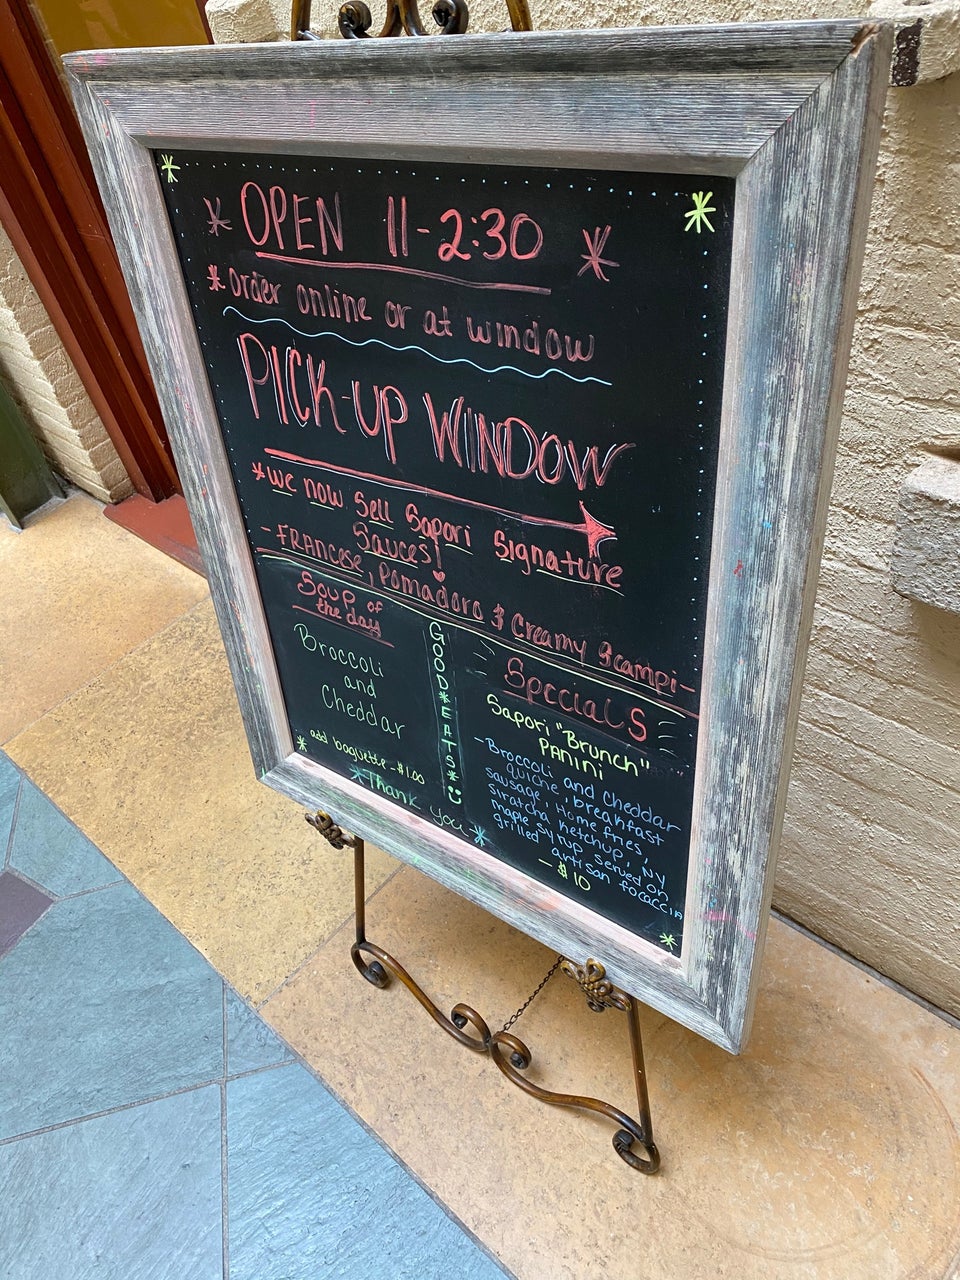 * OPEN 11-2:30 *
* order online or at window
PICK-UP WINDOW
*we now sell Sapori Signature
Sauces!
- FRANCESE, Pomadoro & Creamy Scampi-
Soup of
the day
Broccoli
and
Cheddar
add baguette - $1.00
*Thank you*
GOOD*EATS*
Specials
Sapori "Brunch"
PANINI
-Broccoli and cheddar
quiche, breakfast
sausage, Home fries,
siratcha ketchup, NY
maple syrup served on
grilled artisan focaccia
- $10